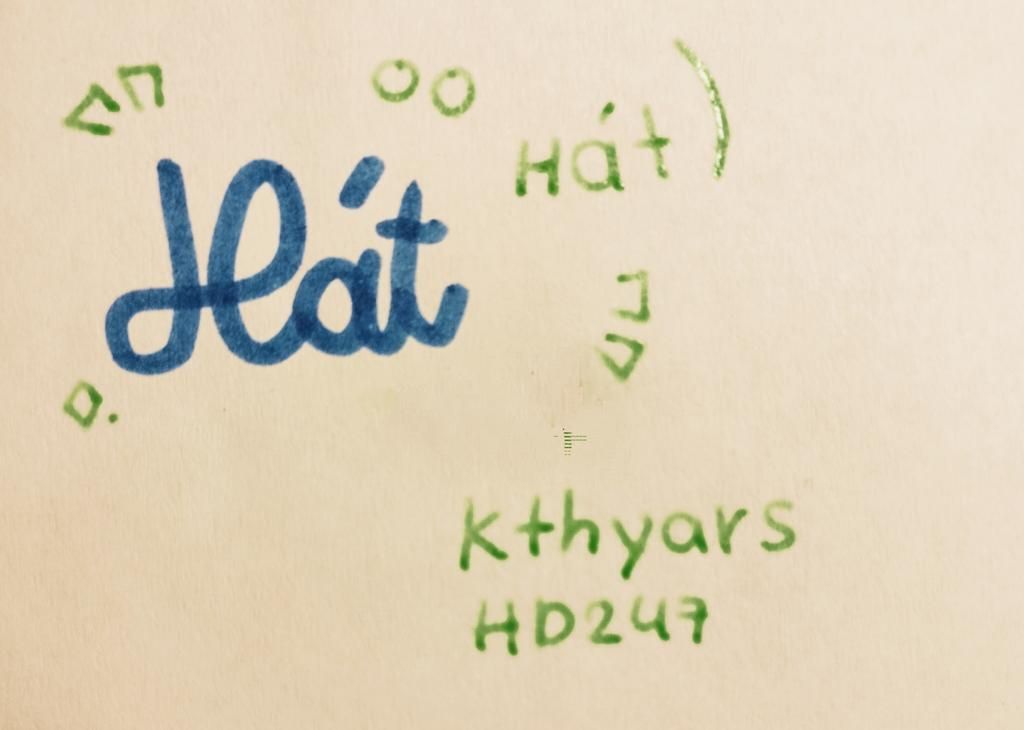 Hát
Hát
Kthyars
HD247